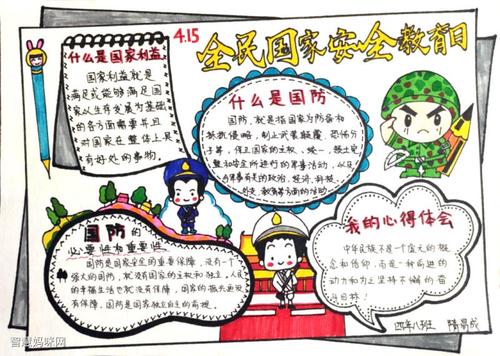 4.15
全民国家安全教育日
什么是国家利益
国家利益就是
满足或能够满足国
家以生存发展为基础
的各方面需要并且
对国家在整体上具
有好处的事物。
什么是国防
国防，就是指国家为防备和
抵抗侵略，制止武装颠覆，
保卫国家的主权、统一、领土完
整和安全所进行的军事活动，以及
与军事有关的政治、经济、科技、
教育等方面的活动。
国防的
必要性和重要性
国防是国家安全的重要保障，没有一个
强大的国防，就没有国家的主权和独立，人民
的幸福生活也就没有保障，国家的振兴更没
有保障，国防是国家独立自主的前提。
我的心得体会
中华民族不是个虚无的概
念和信仰，而是一种前进的
动力和方
四年八班
隋昌成
智慧妈咪网